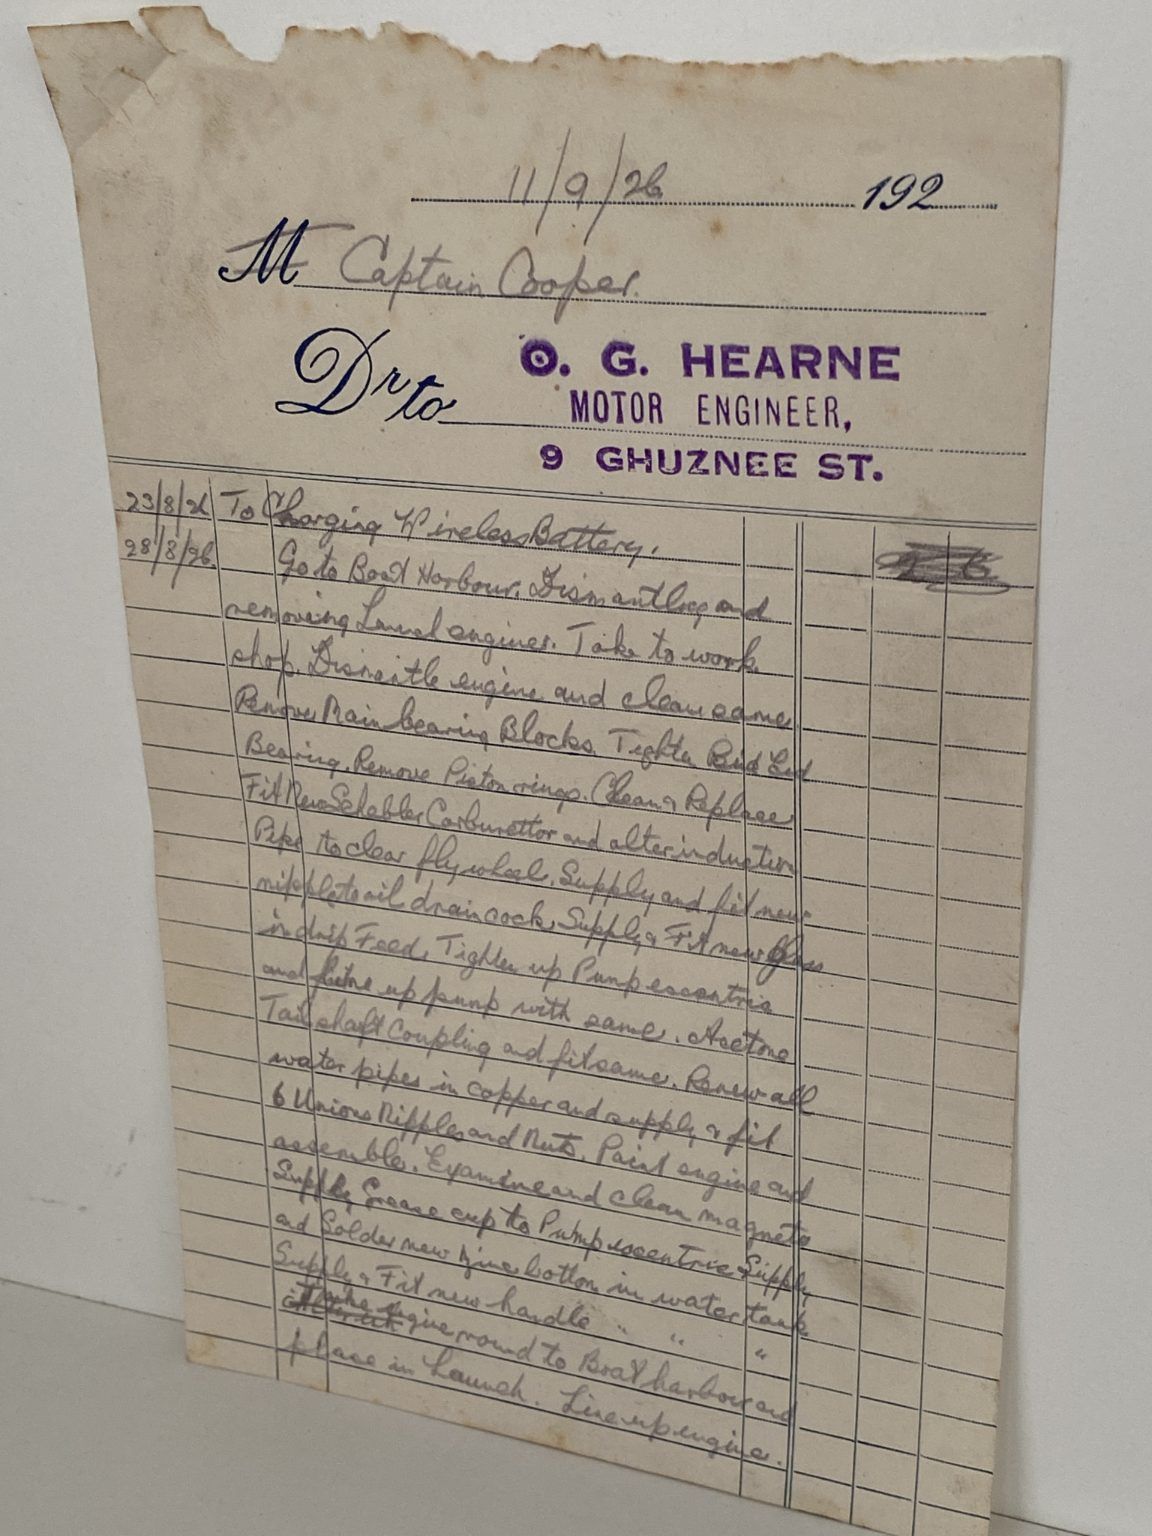 11/9/26 192
M Captain Cooper.
Dr to O. G. HEARNE
MOTOR ENGINEER,
9 GHUZNEE ST.
23/8/26 To Charging Wireless Battery. 2 6
28/8/26 Go to Boat Harbour. Dismantling and
removing Launch engines. Take to work
shop. Dismantle engine and clean same.
Remove Main bearing Blocks. Tighten Big End
Bearing. Remove Piston rings. Clean & Replace
Fit New Schebler Carburettor and alter induction
Pipe to clear flywheel. Supply and fit new
nipple to oil drain cock. Supply & Fit new Glass
in drip Feed. Tighten up Pump eccentric
and line up pump with same.
Tail shaft Coupling and fit same. Renew all
water pipes in copper and supply & fit
6 Unions Nipples and Nuts. Paint engine and
assemble. Examine and clean magneto
Supply Grease cup to Pump eccentric Supply
and Solder new Zinc bottom in water tank
Supply & Fit new handle " " "
Take engine round to Boat harbour and
place in Launch. Line up engine.